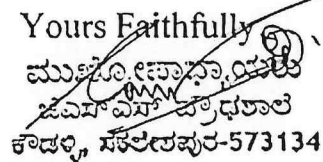 Yours Faithfully
ಮುಖ್ಯೋಪಾಧ್ಯಾಯರು
ಜೆಎಸ್ಎಸ್ ಪ್ರೌಢಶಾಲೆ
ಕೌಡಳ್ಳಿ, ಸಕಲೇಶಪುರ-573134